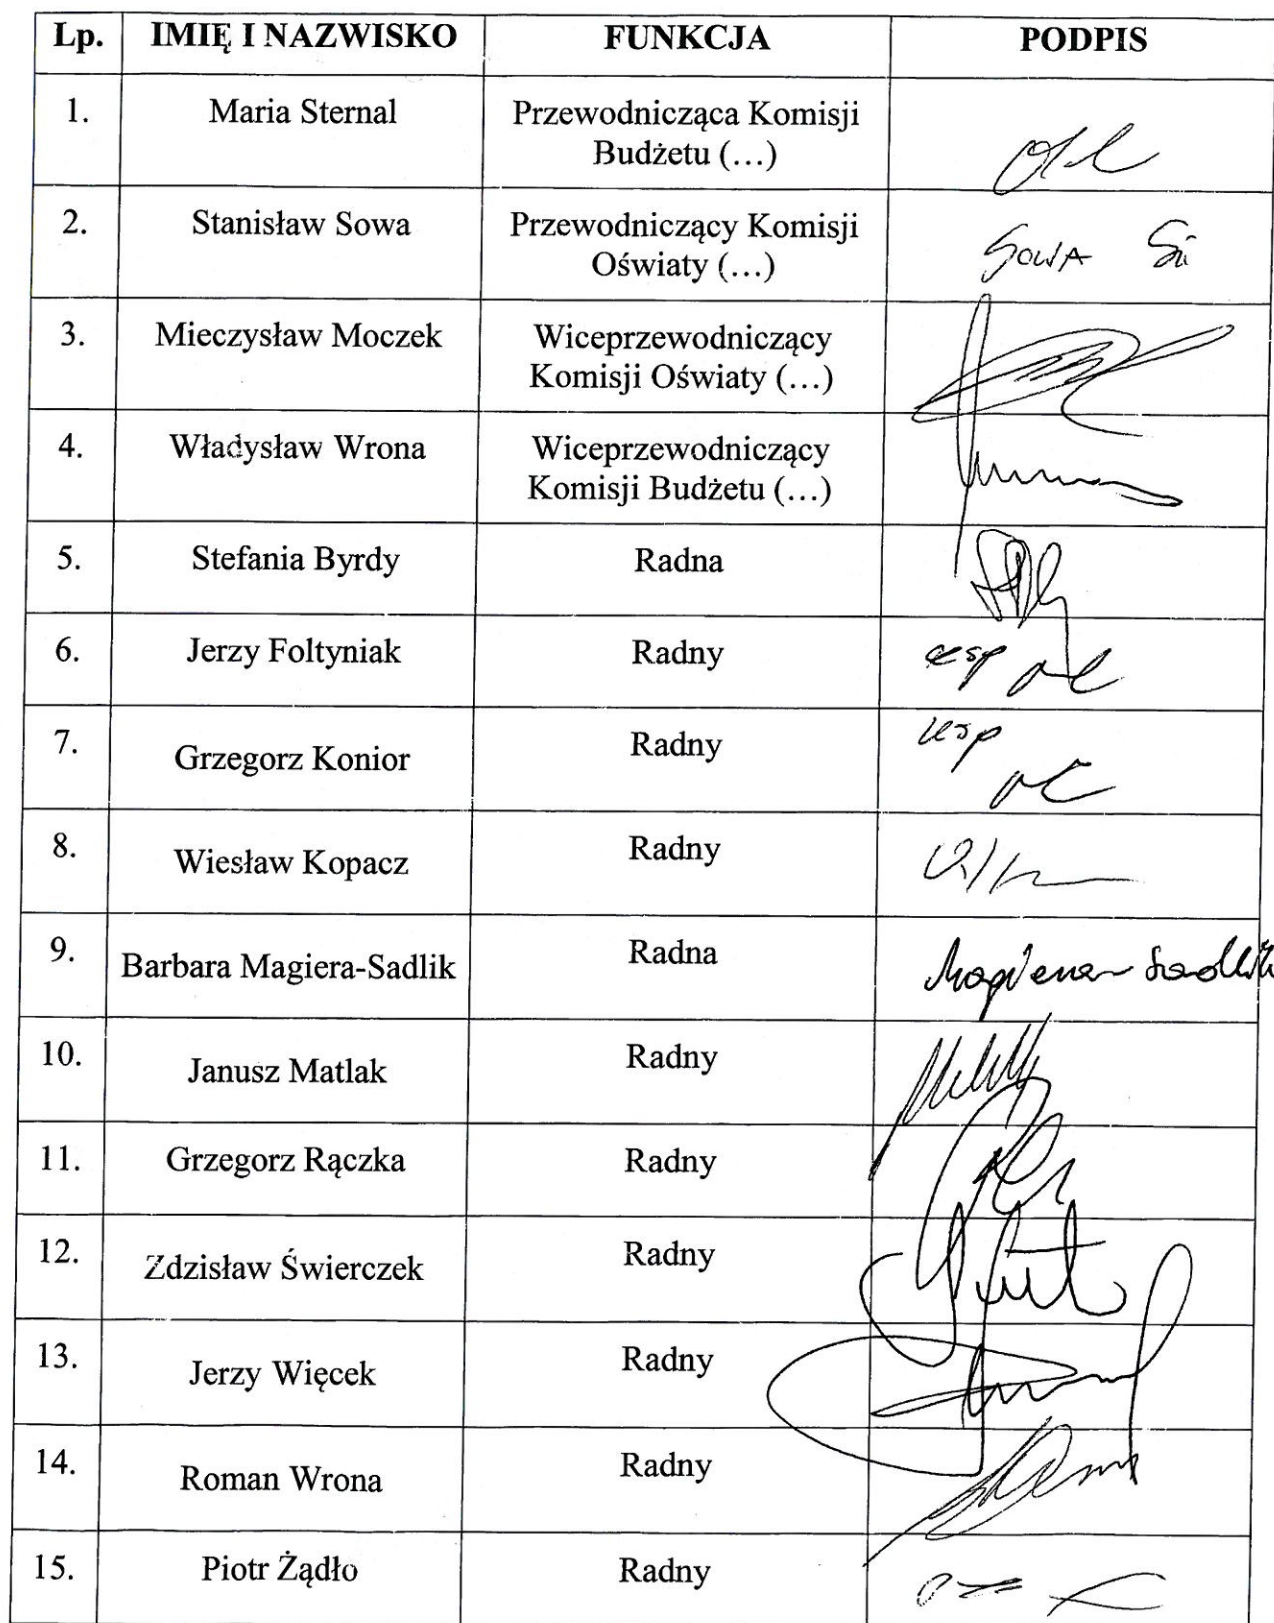 Lp. IMIĘ I NAZWISKO FUNKCJA PODPIS
1. Maria Sternal Przewodnicząca Komisji
Budżetu (…)
2. Stanisław Sowa Przewodniczący Komisji
Oświaty (…)
SOWA
3. Mieczysław Moczek Wiceprzewodniczący
Komisji Oświaty (…)
4. Władysław Wrona Wiceprzewodniczący
Komisji Budżetu (…)
5. Stefania Byrdy Radna
6. Jerzy Foltyniak Radny
7. Grzegorz Konior Radny
8. Wiesław Kopacz Radny
9. Barbara Magiera-Sadlik Radna Magiera Sadlik
10. Janusz Matlak Radny
11. Grzegorz Rączka Radny
12. Zdzisław Świerczek Radny
13. Jerzy Więcek Radny
14. Roman Wrona Radny
15. Piotr Żądło Radny